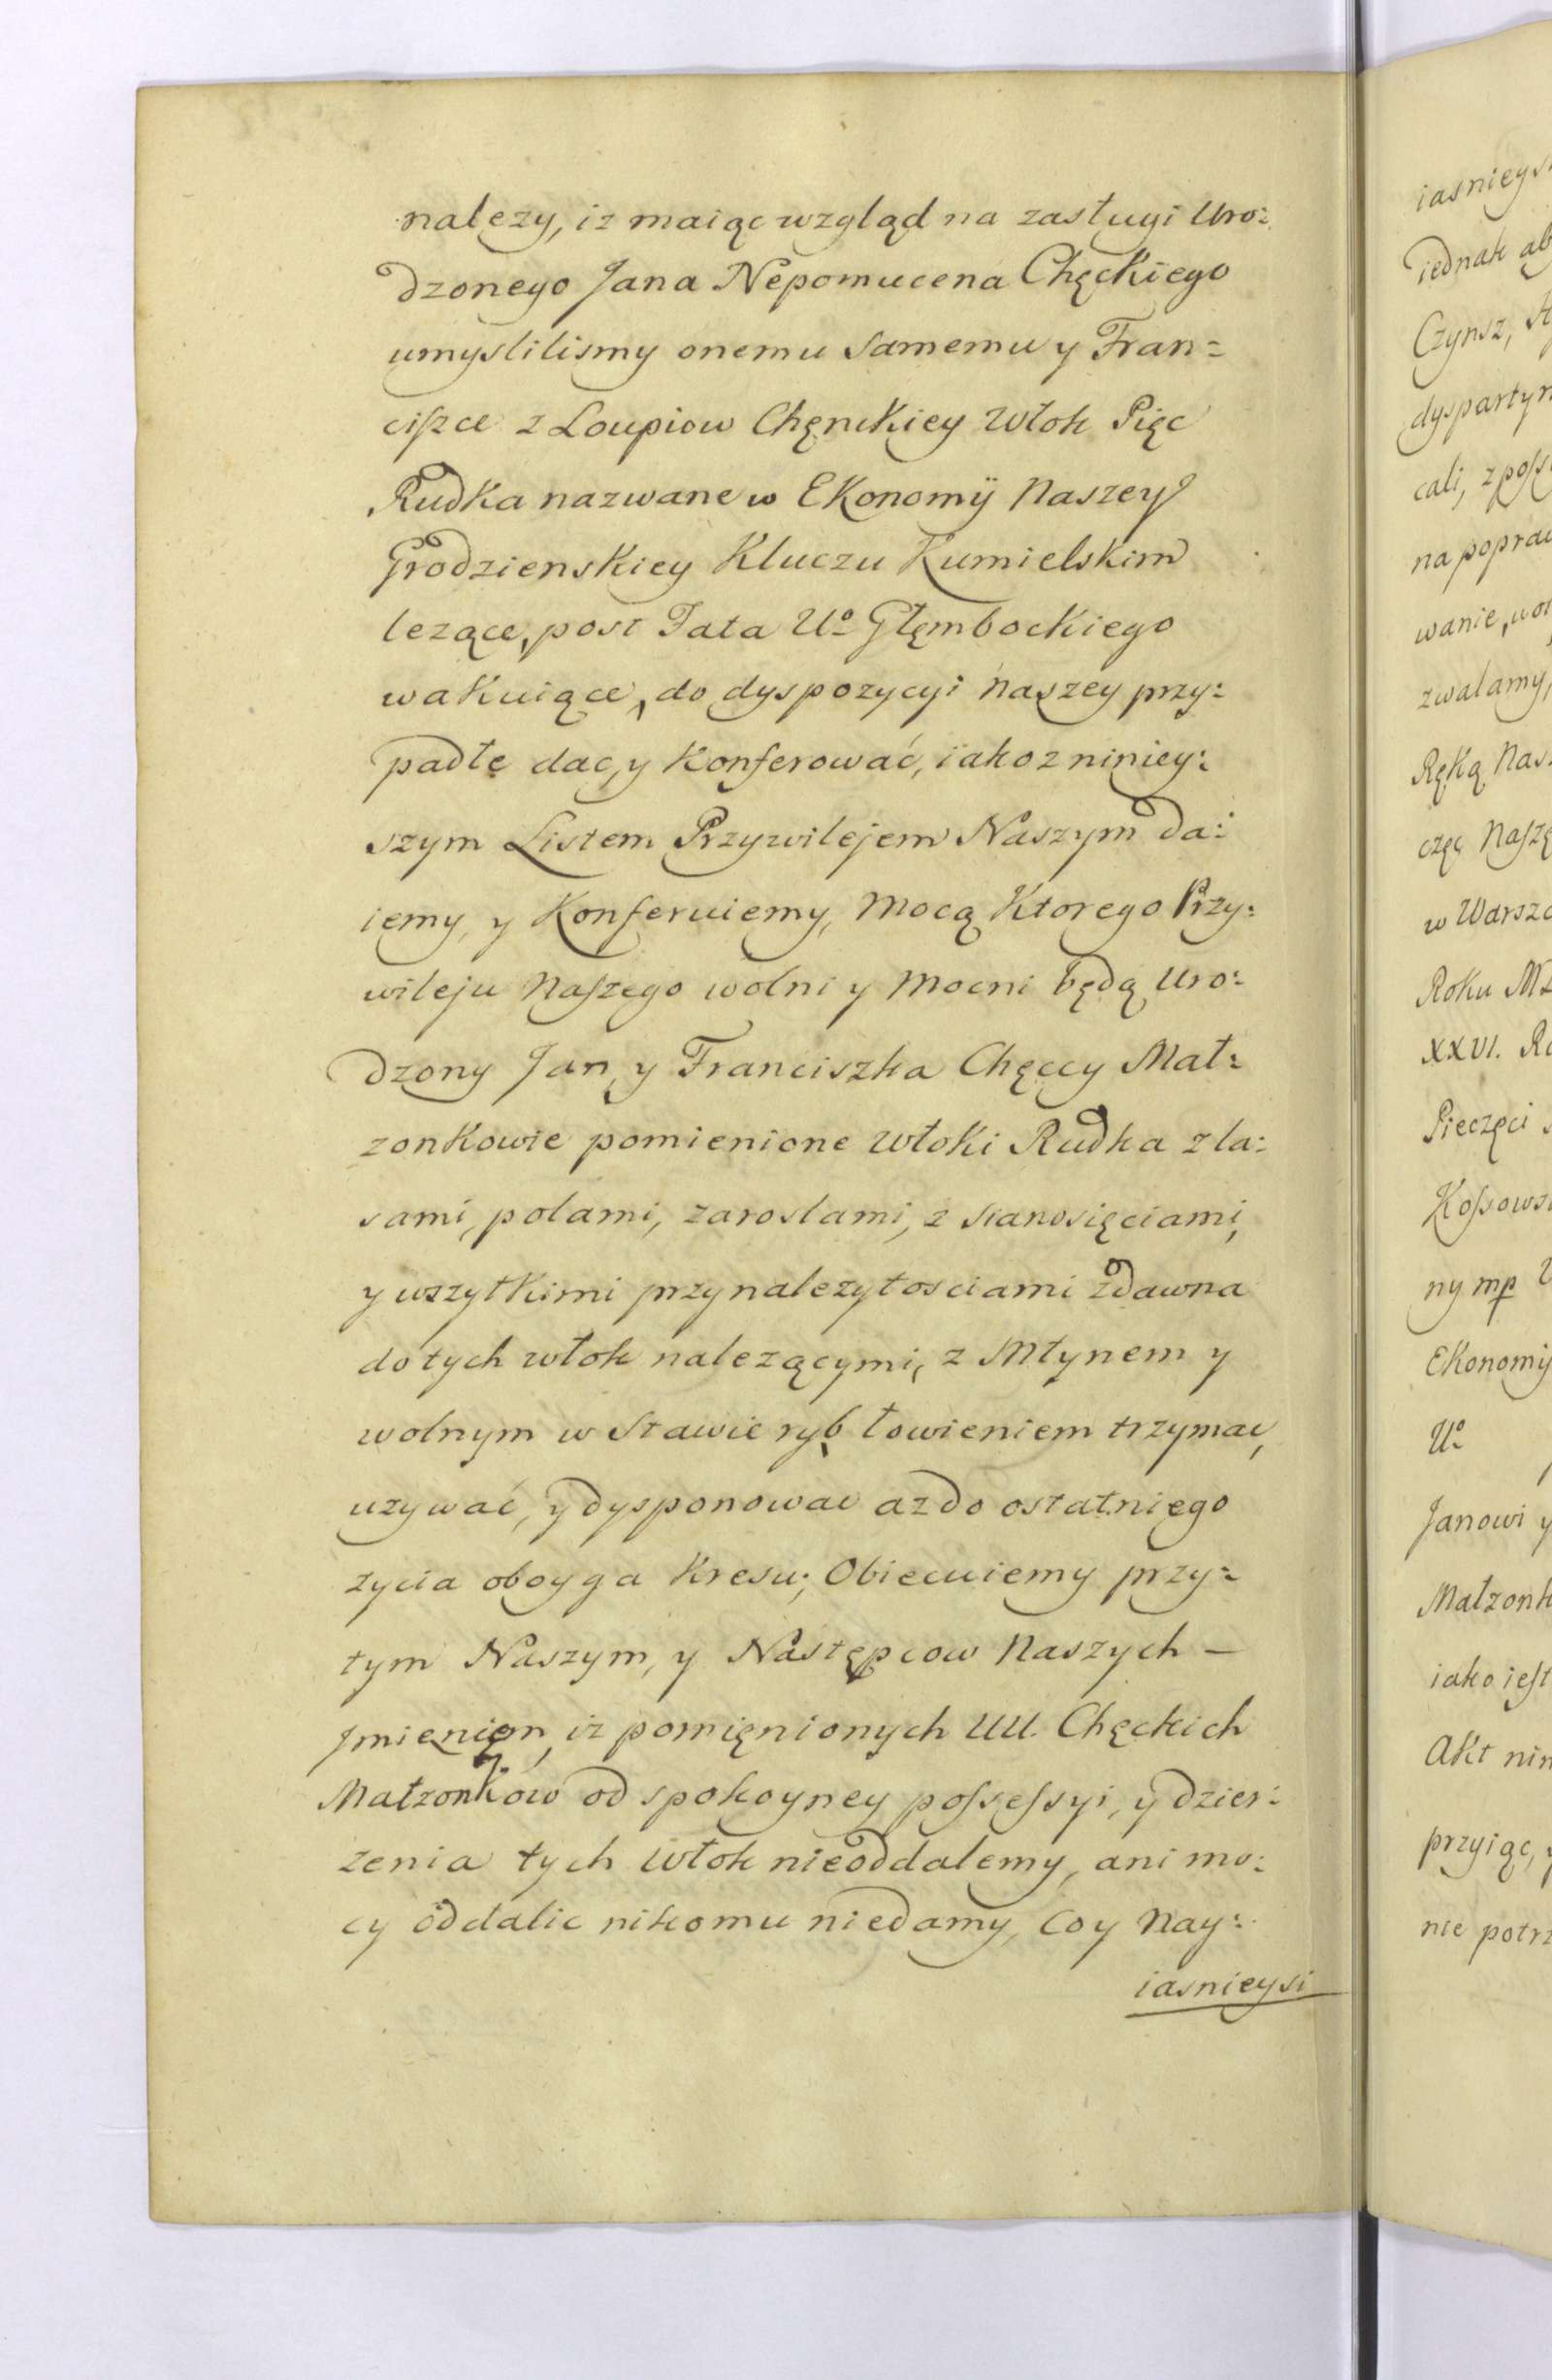 nalezy, iz maiąc wzgląd na zasługi Uro=
dzonego Jana Nepomucena Chęckiego
umyslilismy onemu samemu y Fran=
ciszce z Loupiow Chęnckiey Włok Pięc
Rudka nazwane w Ekonomÿ Naszey
Grodzienskiey Kluczu Kumielskim
lezące, post Fata Uº Głęmbockiego
wakuiące, do dyspozycyi Naszey przy=
padłe dac, y konferować, iakoz niniey=
szym Listem Przywilejem Naszym da=
iemy, y Konferuiemy, Mocą Ktorego Przy=
wileju Naszego wolni y Mocni będą Uro=
dzony Jan y Franciszka Chęccy Mał=
zonkowie pomienione Włoki Rudka z la=
sami, polami, zaroslami, z sianosięciami,
y wszytkimi przynalezytosciami zdawna
do tych włok nalezącymi, z Młynem y
wolnym w Stawie ryb łowieniem trzymac,
uzywać, y dysponowac az do ostatniego
zycia oboyga Kresu; Obiecuiemy przy=
tym Naszym, y Następcow Naszych —
Jmieniem, iz pomięnionych UU. Chęckich
Małzonkow od spokoyney possessyi, y dzier=
zenia tych Włok nieoddalemy, ani mo=
cy oddalic nikomu niedamy, co y Nay=
iasnieysi
iasnieys
iednak ab
Czynsz,
dyspartyn
cali, z poss
na popraw
wanie, wol
zwalamy,
Ręką Nas
częc Naszę
w Warsza
Roku
XXVI. R
Pieczęci
Kossows
ny mp
Ekonomÿ
Uº
Janowi y
Małzonk
iako iest
Akt nin
przyiąc,
nie potrz